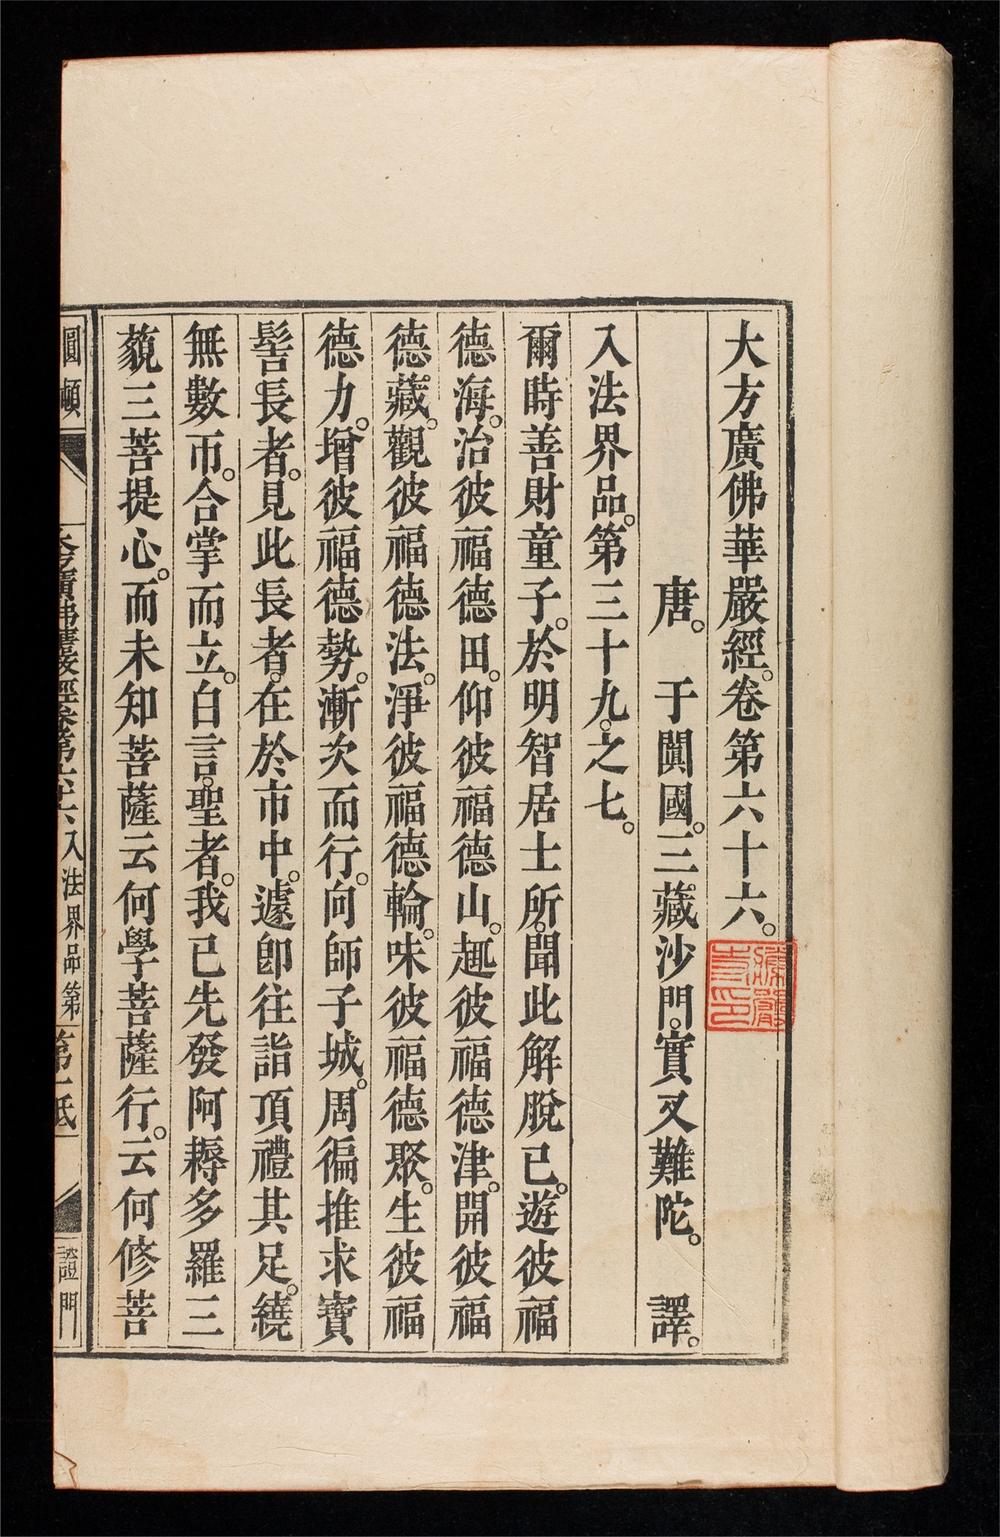 大方廣佛華嚴經。卷第六十六。
唐。于闐國。三藏沙門。實叉難陀。譯。
入法界品。第三十九。之七。
爾時善財童子。於明智居士所。聞此解脫已。遊彼福
德海。治彼福德田。仰彼福德山。趣彼福德津。開彼福
德藏。觀彼福德法。淨彼福德輪。味彼福德聚。生彼福
德力。增彼福德勢。漸次而行。向師子城。周徧推求寶
髻長者。見此長者。在於市中。遽卽往詣頂禮其足。繞
無數帀。合掌而立。白言。聖者。我已先發阿耨多羅三
藐三菩提心。而未知菩薩云何學菩薩行。云何修菩
圓頓
入法界品第
第一
證門